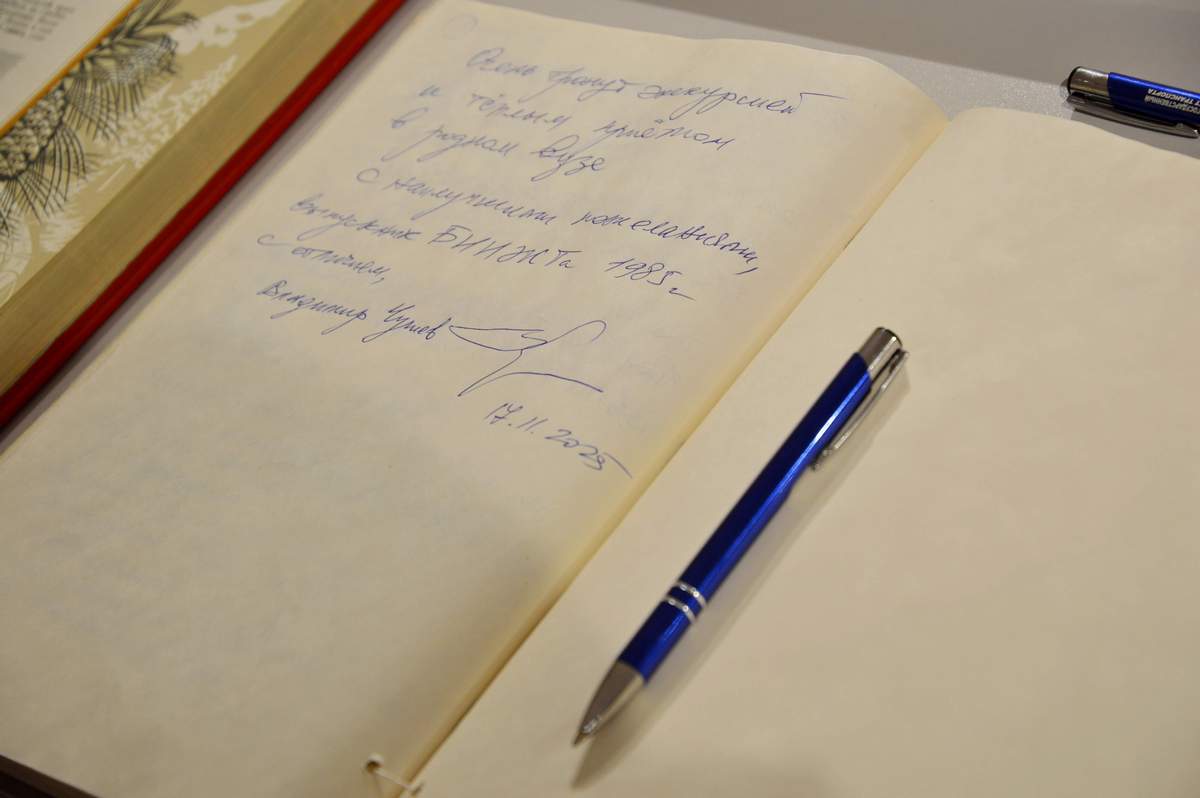 Очень тронут экскурсией
и тёплым приёмом
в родном вузе
С наилучшими пожеланиями,
выпускник БИИЖТа 1985 г
с отличием,
Владимир Чушев
17.11.2025
ГОСУДАРСТВЕННЫЙ
ТРАНСПОРТА